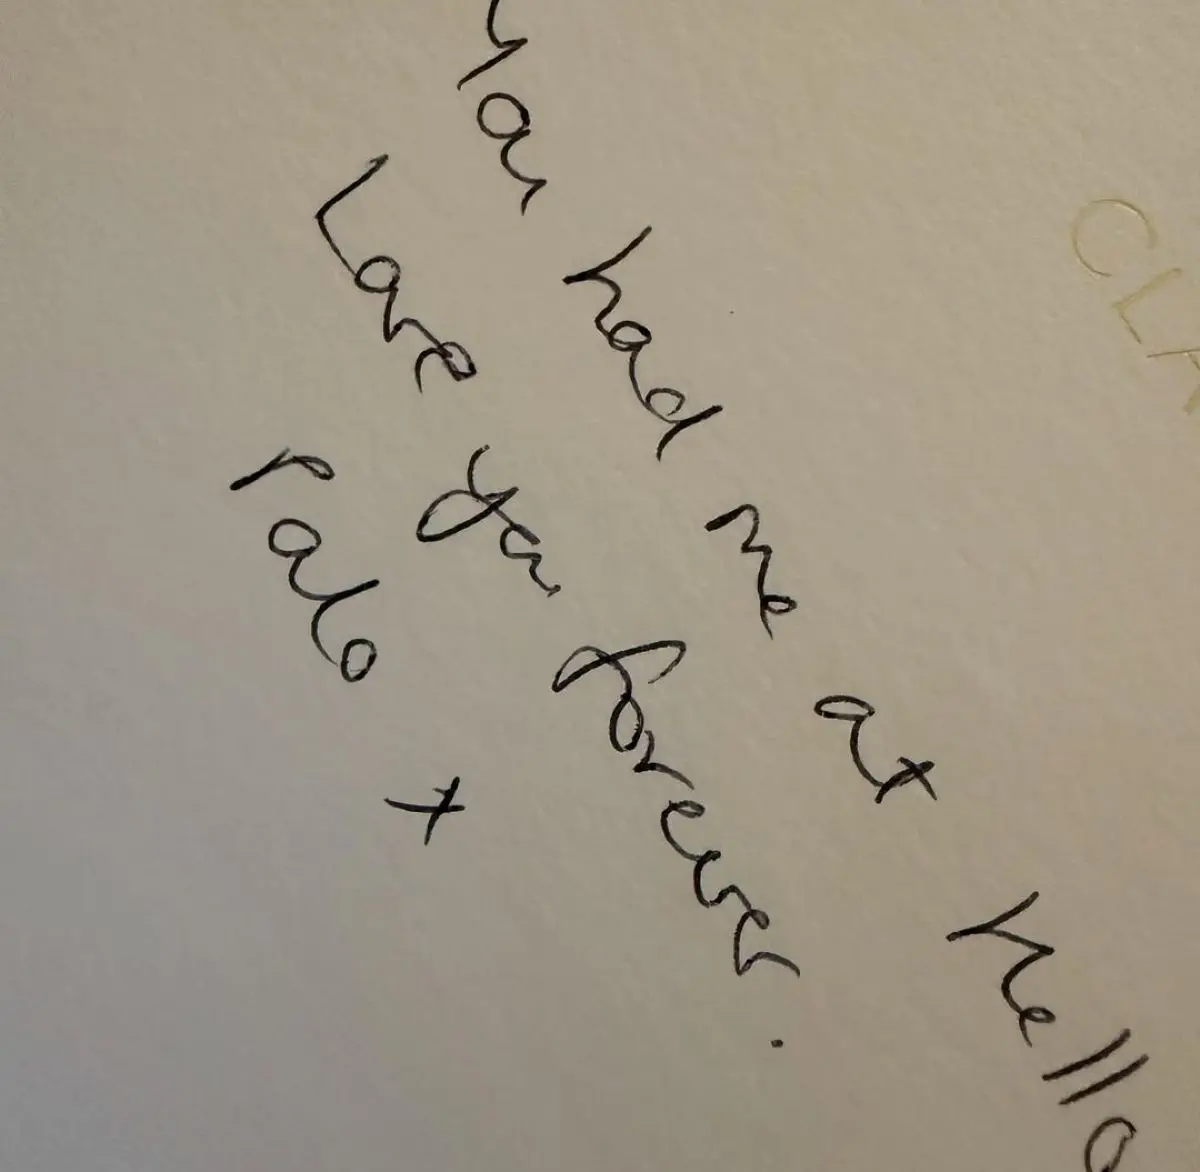 You had me at hello
Love you forever.
Palo +
CLA